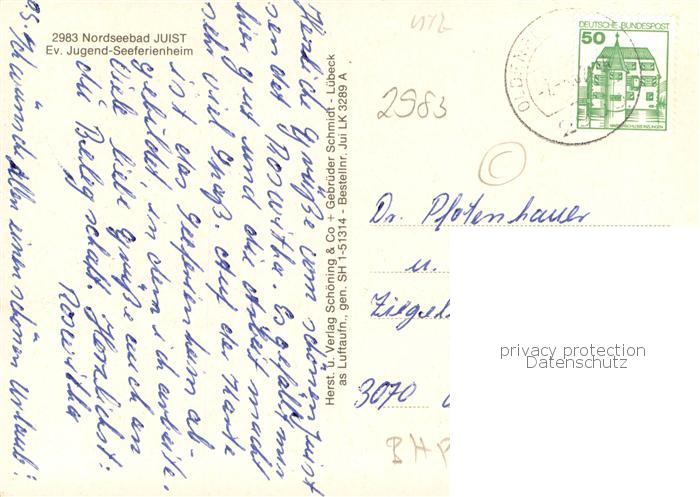 2983 Nordseebad JUIST
Ev. Jugend-Seeferienheim
Herzliche Grüße vom schönen Juist
sendet Roswitha. Es gefällt mir
hier gut und die Arbeit macht
sehr viel Spaß. Auf der Karte
ist das Seeferienheim ab-
gebildet, in dem ich arbeite.
Viele liebe Grüße auch an
die Belegschaft. Herzlichst:
Roswitha
Wünsch allen einen schönen Urlaub!
Herst. u. Verlag Schöning & Co + Gebrüder Schmidt - Lübeck
as Luftaufn., gen. SH 1-51314 - Bestellnr. Jui LK 3289 A
2983
DEUTSCHE BUNDESPOST
50
Dr. Pfotenhauer
u.
Ziegel
3070
BHP
privacy protection
Datenschutz